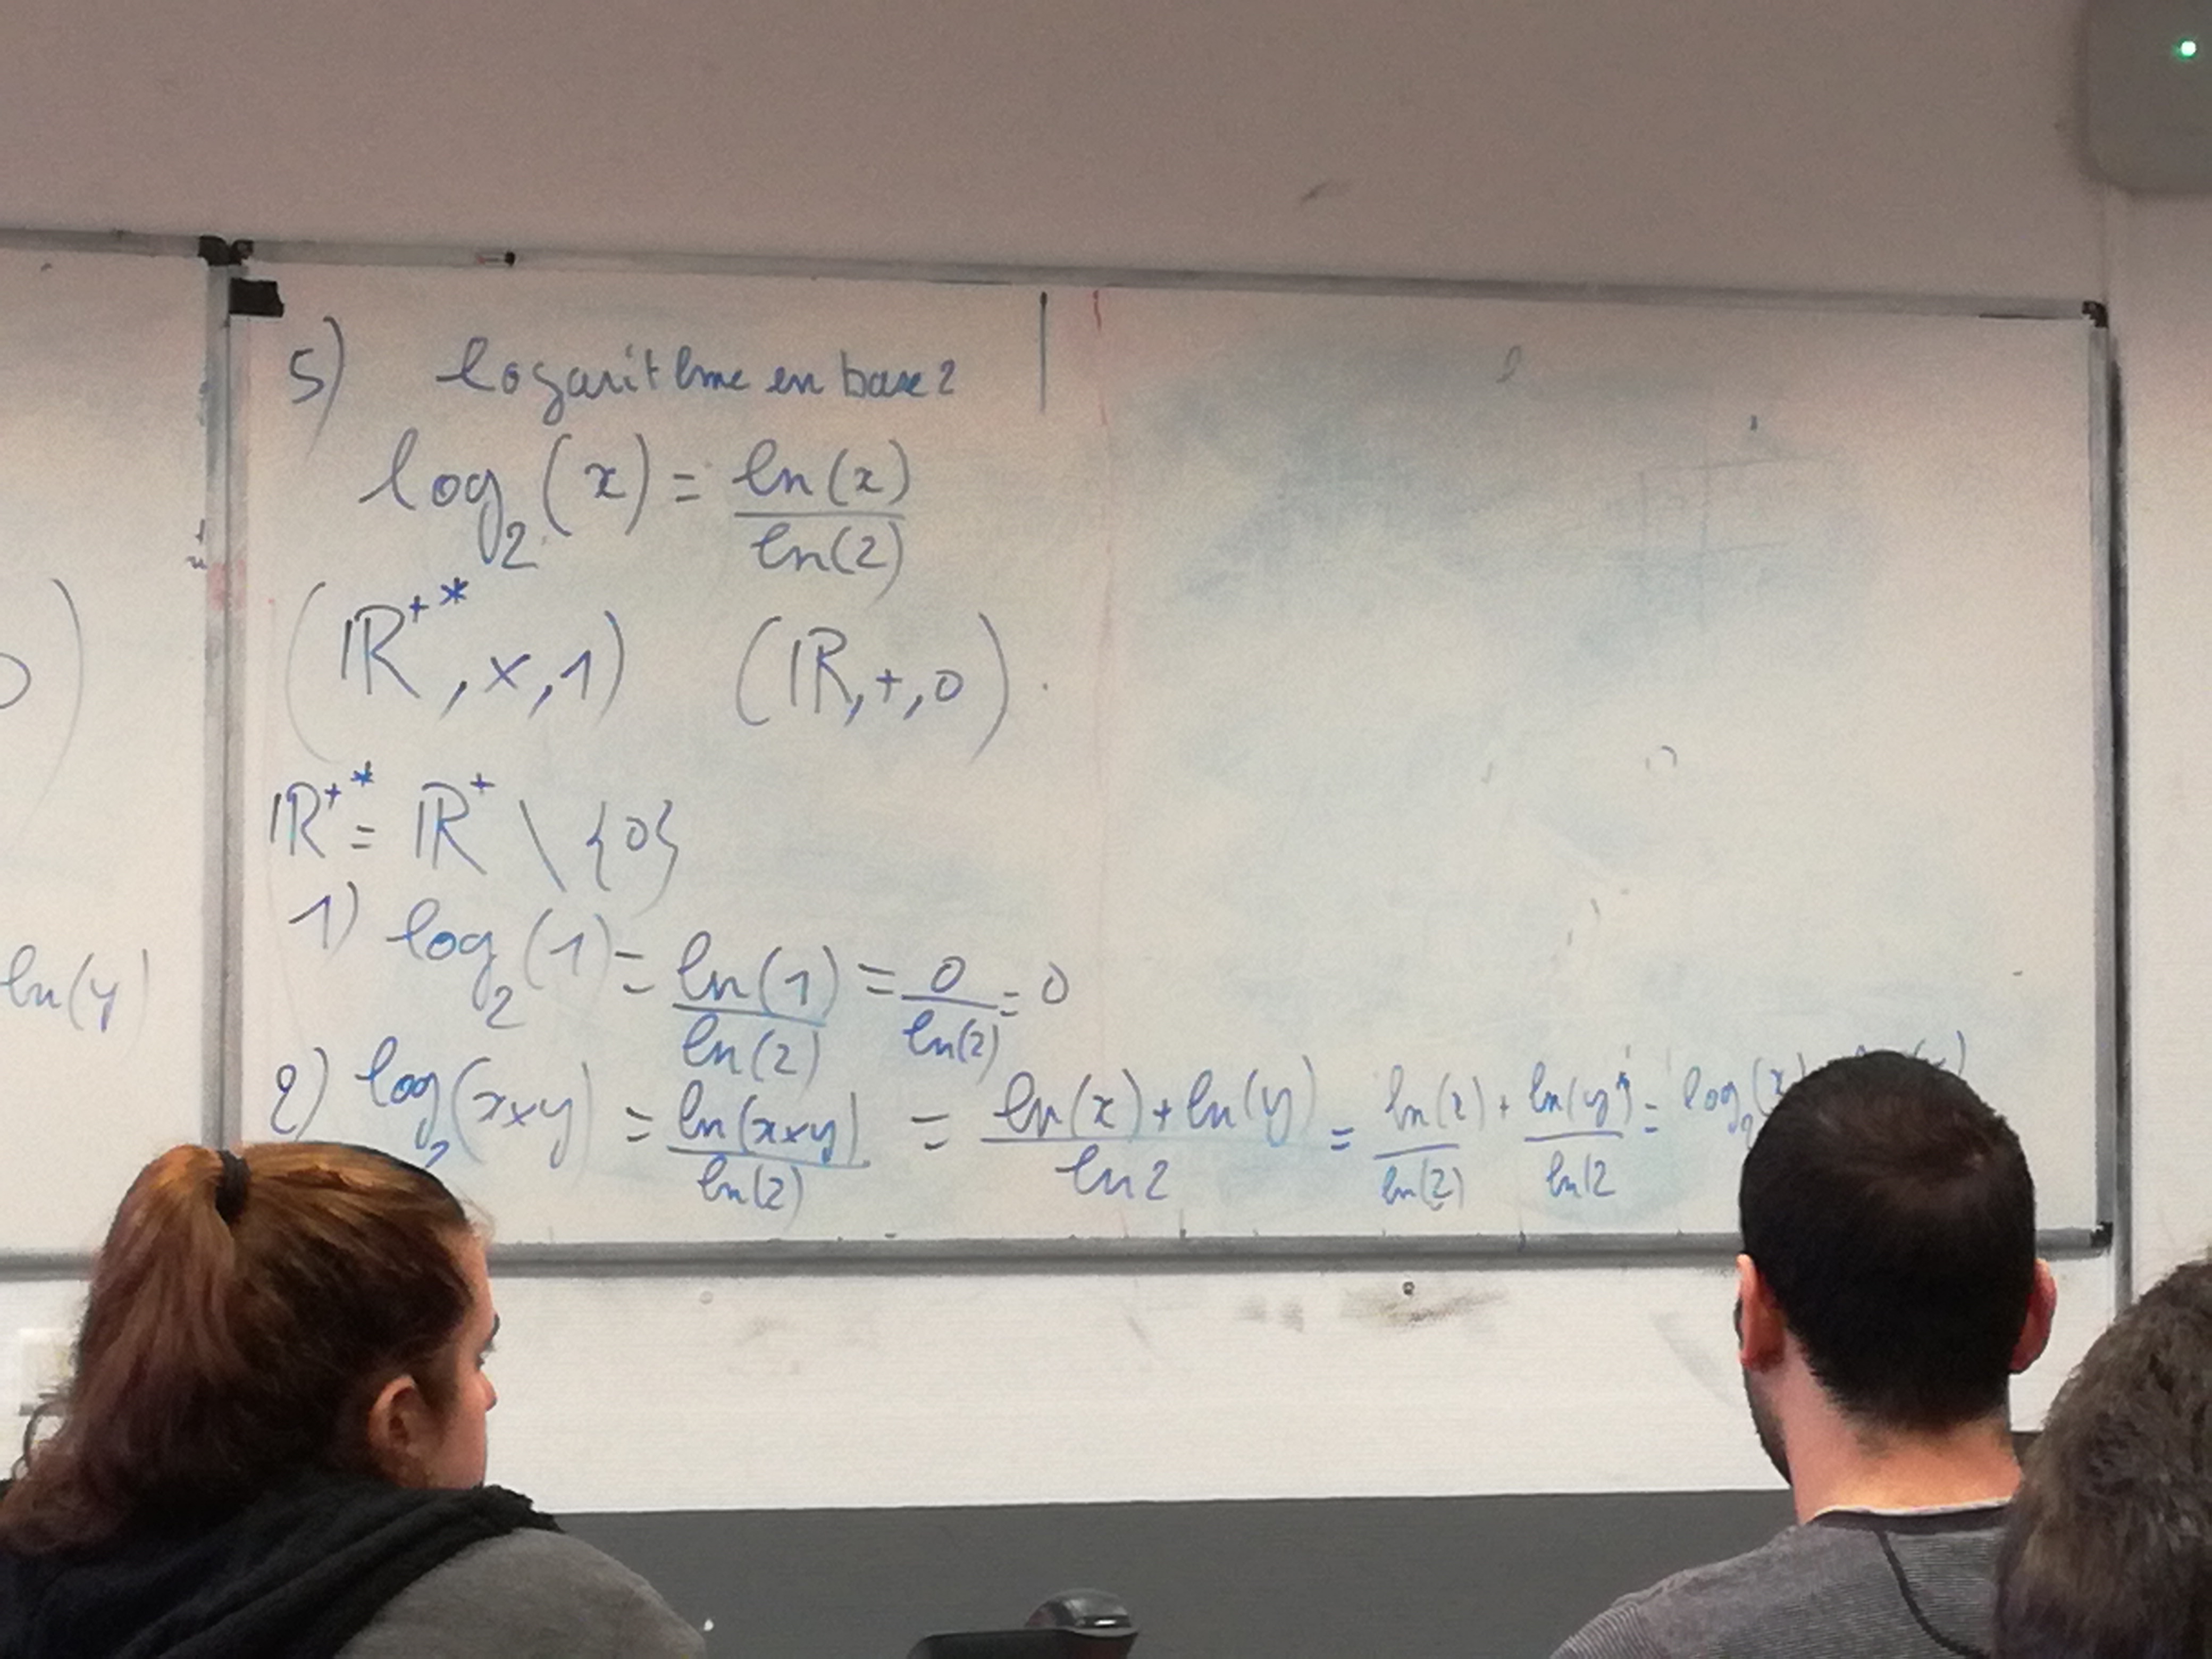 )
ln(y)
5) Logarithme en base 2
log₂(x) = ln(x)/ln(2)
(ℝ⁺*, ×, 1) (ℝ, +, 0)
ℝ⁺* = ℝ⁺ \ {0}
1) log₂(1) = ln(1)/ln(2) = 0/ln(2) = 0
2) log₂(x×y) = ln(x×y)/ln(2) = (ln(x)+ln(y))/ln2 = ln(x)/ln(2) + ln(y)/ln(2 = log₂(x)